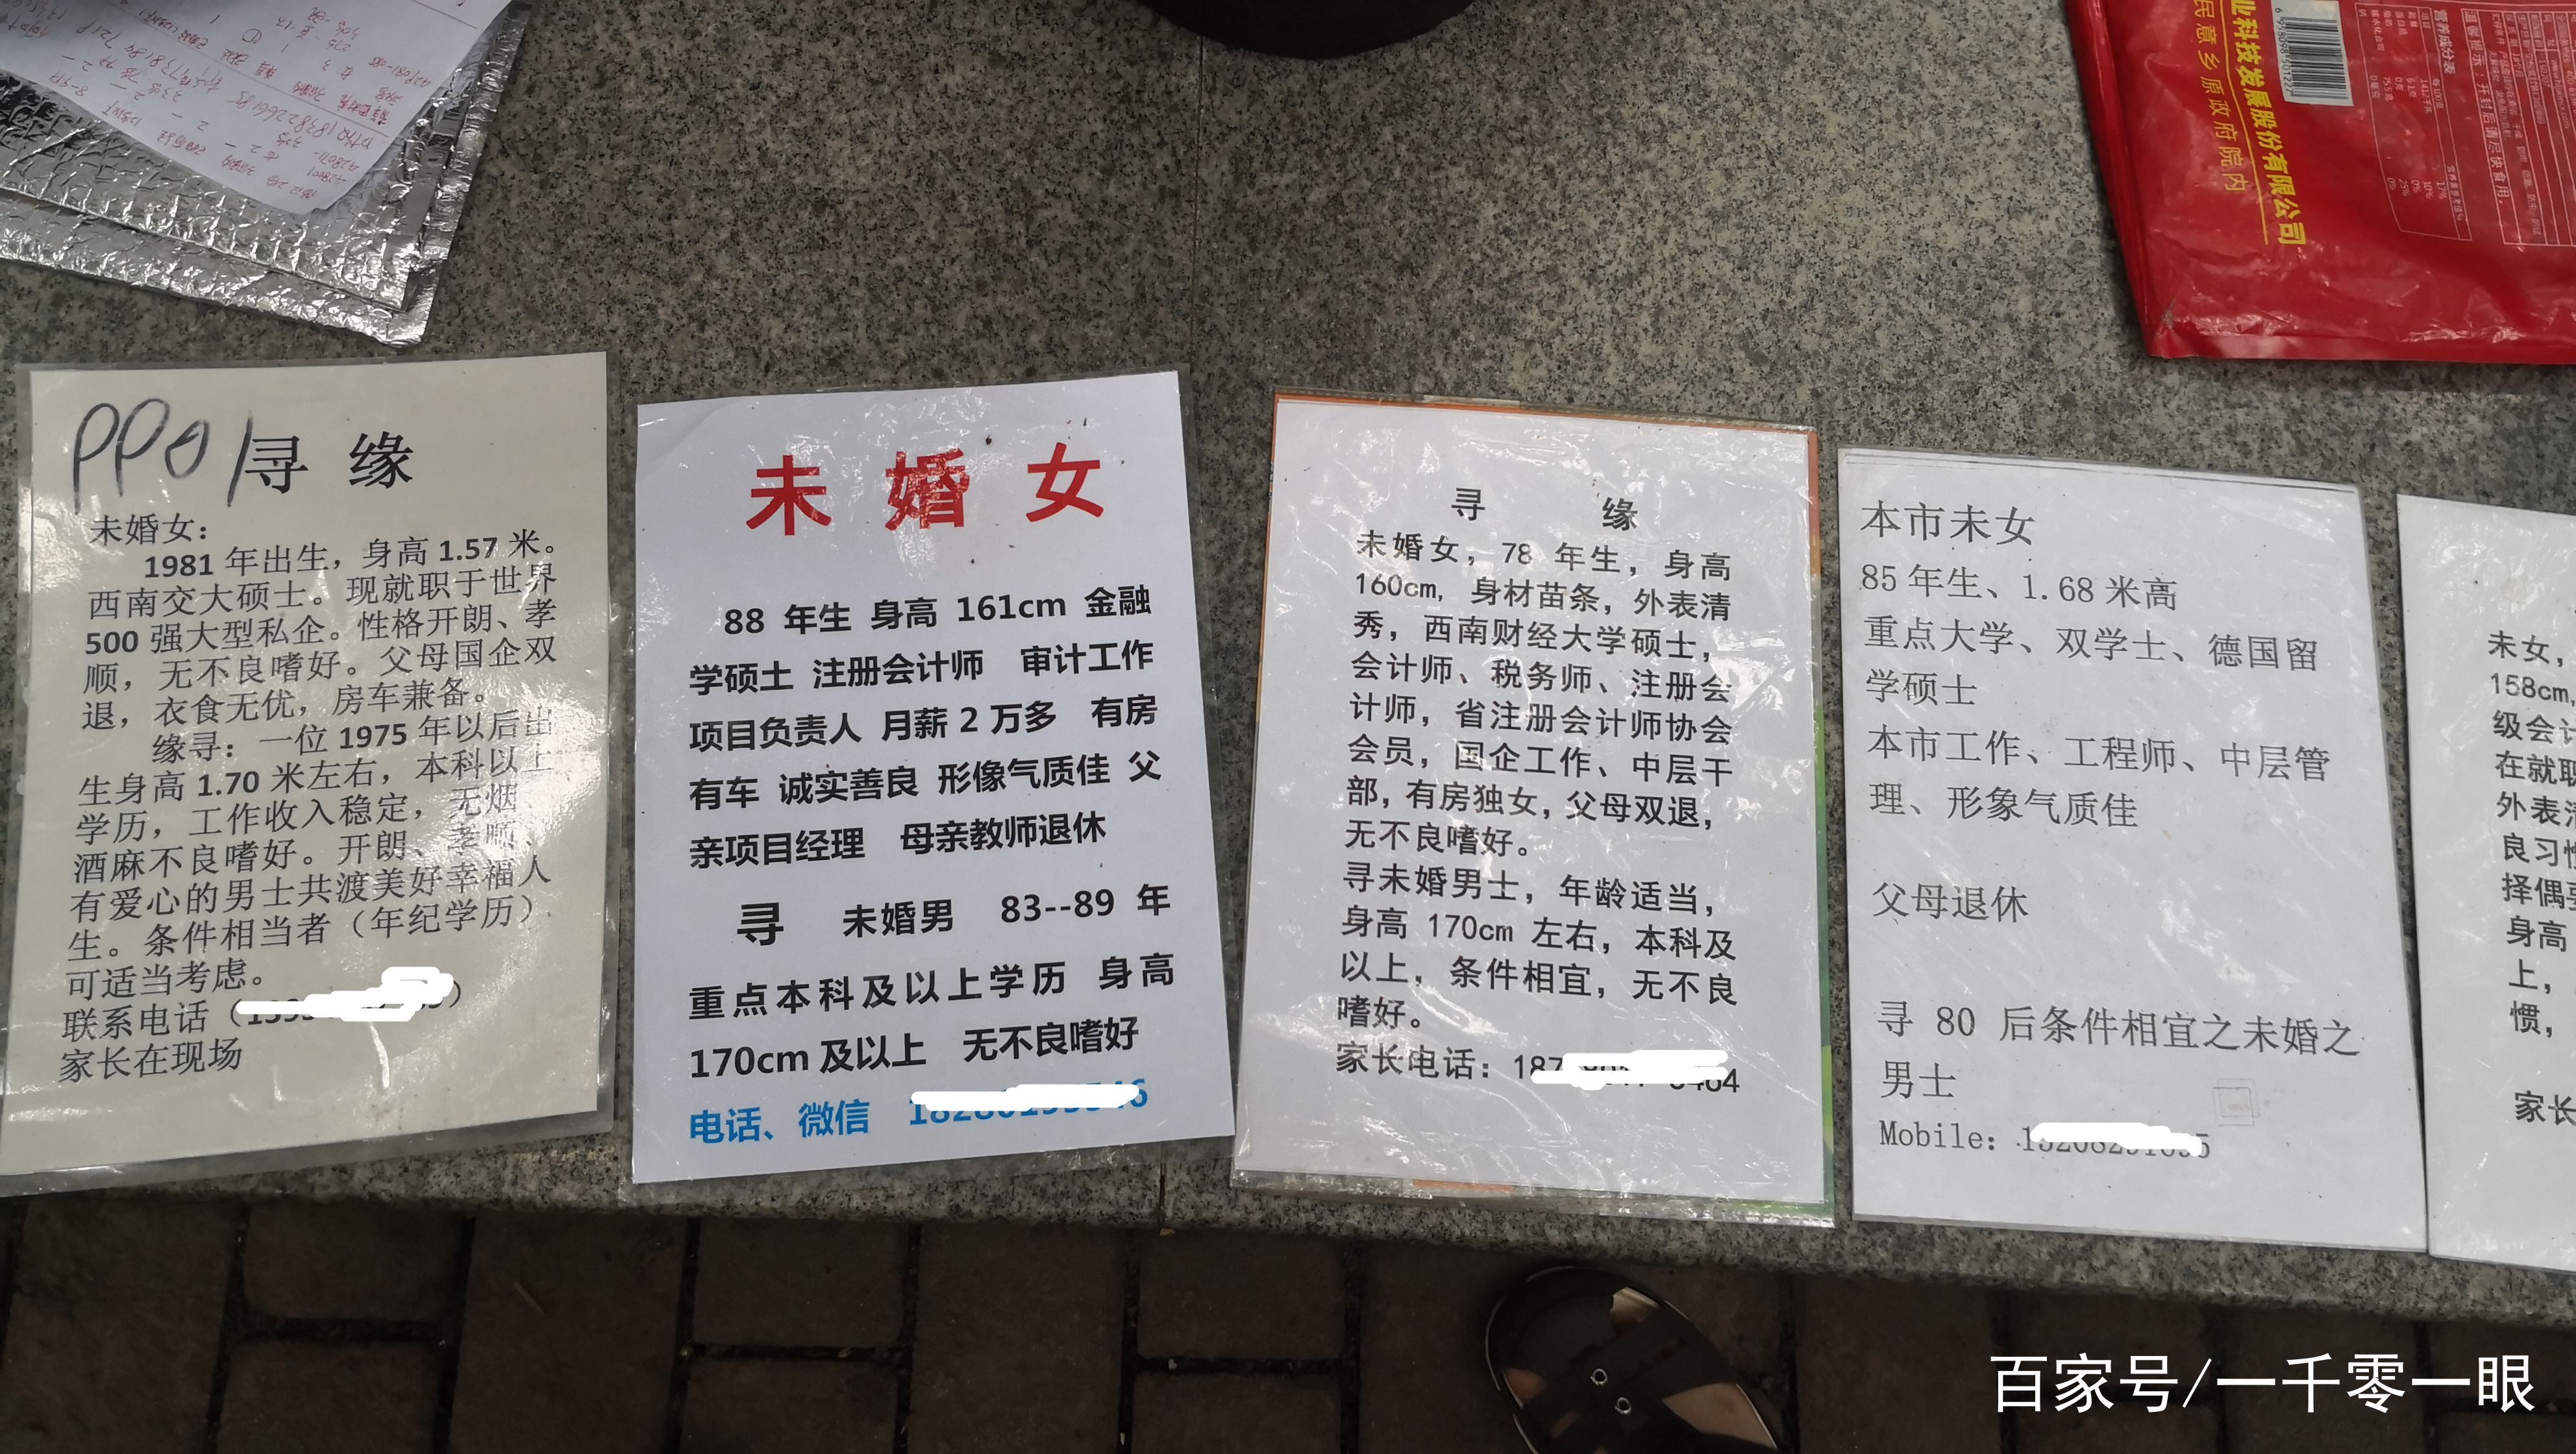 业科技发展股份有限公司
民意乡原政府院内
营养成分表
PP01
寻 缘
未婚女：
1981 年出生，身高 1.57 米。
西南交大硕士。现就职于世界
500 强大型私企。性格开朗、孝
顺，无不良嗜好。父母国企双
退，衣食无优，房车兼备。
缘寻：一位 1975 年以后出
生身高 1.70 米左右，本科以上
学历，工作收入稳定，无烟、
酒麻不良嗜好。开朗、孝顺、
有爱心的男士共渡美好幸福人
生。条件相当者（年纪学历）
可适当考虑。
联系电话（
家长在现场
未 婚 女
88 年生 身高 161cm 金融
学硕士 注册会计师 审计工作
项目负责人 月薪 2 万多 有房
有车 诚实善良 形像气质佳 父
亲项目经理 母亲教师退休
寻 未婚男 83--89 年
重点本科及以上学历 身高
170cm 及以上 无不良嗜好
电话、微信
寻 缘
未婚女，78 年生，身高
160cm, 身材苗条，外表清
秀，西南财经大学硕士，
会计师、税务师、注册会
计师，省注册会计师协会
会员，国企工作、中层干
部，有房独女，父母双退，
无不良嗜好。
寻未婚男士，年龄适当，
身高 170cm 左右，本科及
以上，条件相宜，无不良
嗜好。
家长电话：187
本市未女
85 年生、1.68 米高
重点大学、双学士、德国留
学硕士
本市工作、工程师、中层管
理、形象气质佳
父母退休
寻 80 后条件相宜之未婚之
男士
Mobile:
未女，
158cm
级会计
在就职
外表清
良习惯
择偶要
身高
上，
惯，
家长
百家号/一千零一眼